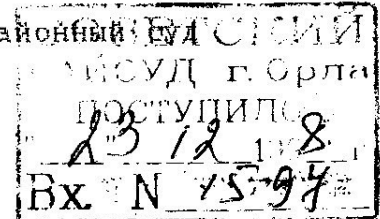 айонный суд
СКИЙ
АЙСУД г. Орла
ПОСТУПИЛО
23 12 8
Вх. N 15-97